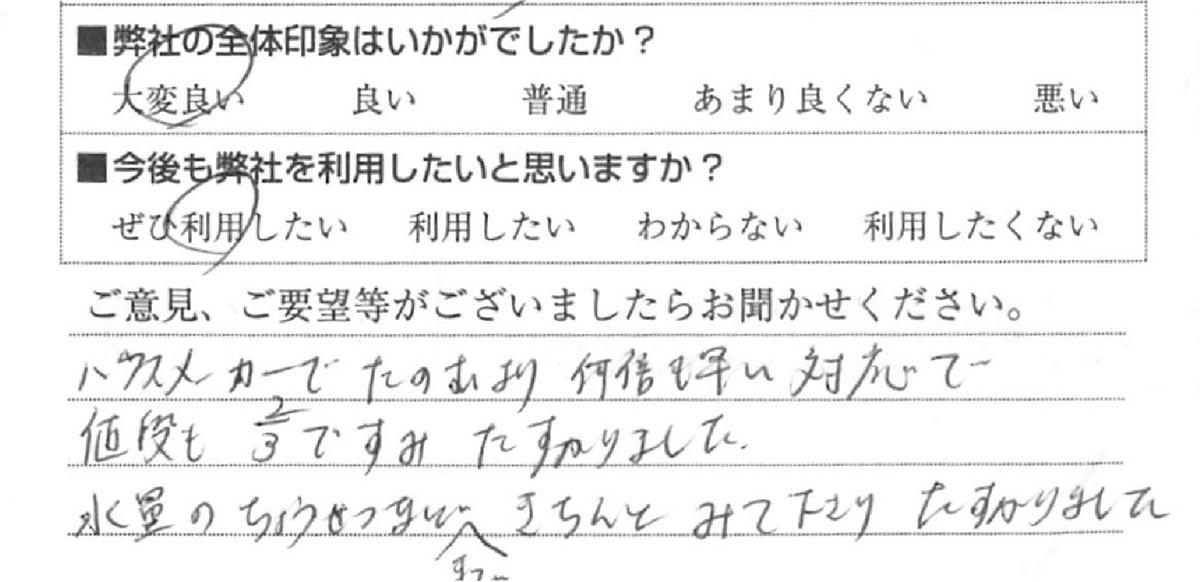 ■弊社の全体印象はいかがでしたか？
大変良い 良い 普通 あまり良くない 悪い
■今後も弊社を利用したいと思いますか？
ぜひ利用したい 利用したい わからない 利用したくない
ご意見、ご要望等がございましたらお聞かせください。
ハウスメーカーでたのむより 何倍も早い 対応で
値段も 2/3ですみ たすかりました.
水量のちょうせつまで きちんと みて下さり たすかりました